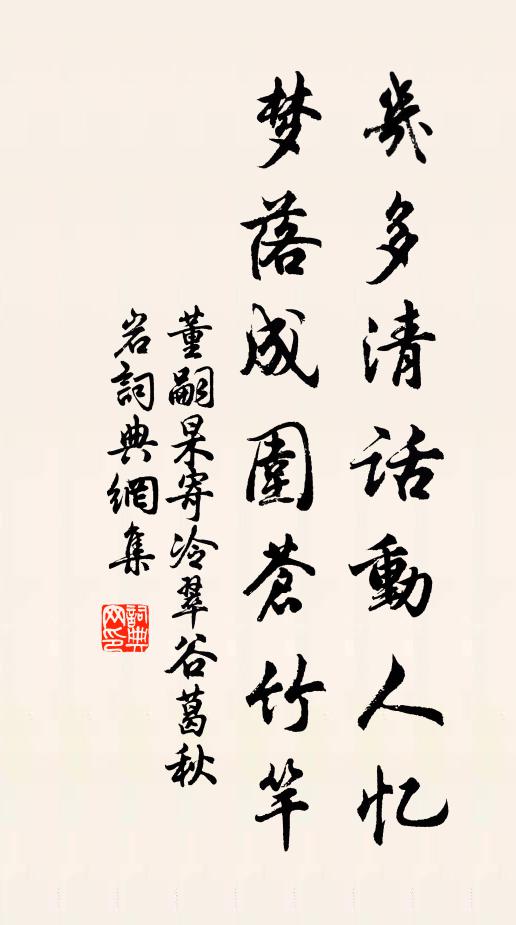 幾多清話動人忆
梦落成圍蒼竹竿
董嗣杲寄冷翠谷葛秋
岩詞典網集
詞典网印